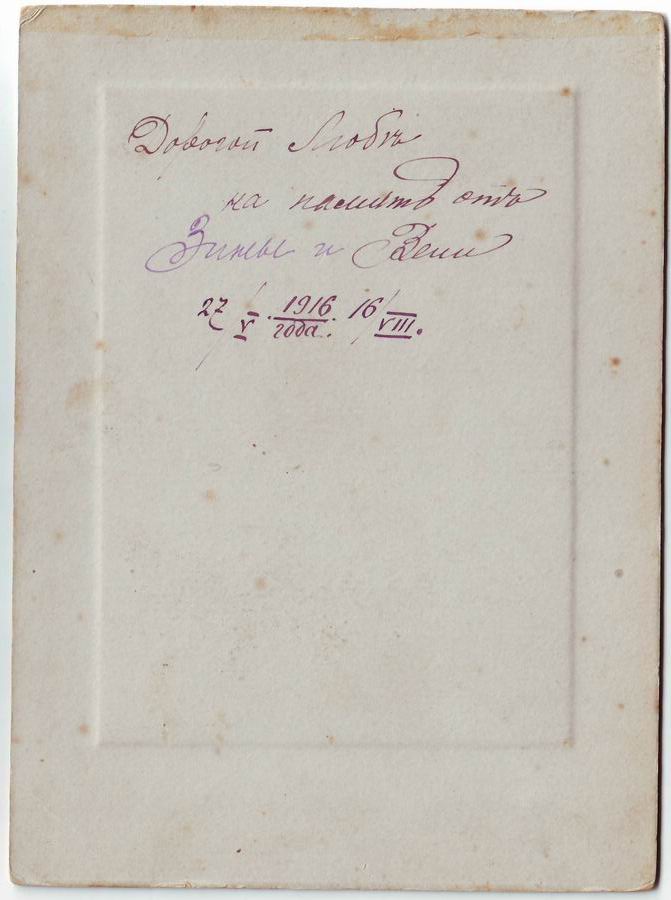 Дорогой Любѣ
на память отъ
Зины и Вени
27/V. 1916 года. 16/VIII.